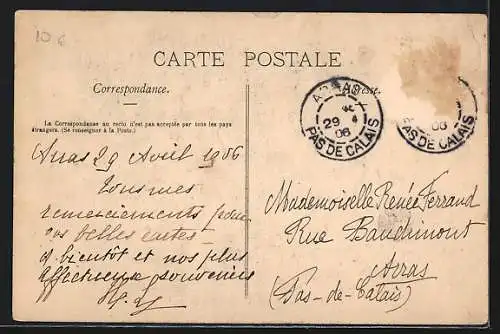 10 €
CARTE POSTALE
Correspondance.
La Correspondance au recto n'est pas acceptée par tous les pays
étrangers. (Se renseigner à la Poste.)
ARRAS
29
06
PAS DE CALAIS
06
PAS DE CALAIS
Arras 29 Avril 1906
Tous mes
remerciements pour
vos belles cartes
A bientôt et nos plus
affectueux souvenirs
Mademoiselle Renée Ferrand
Rue Baudimont
Arras
(Pas-de-Calais)